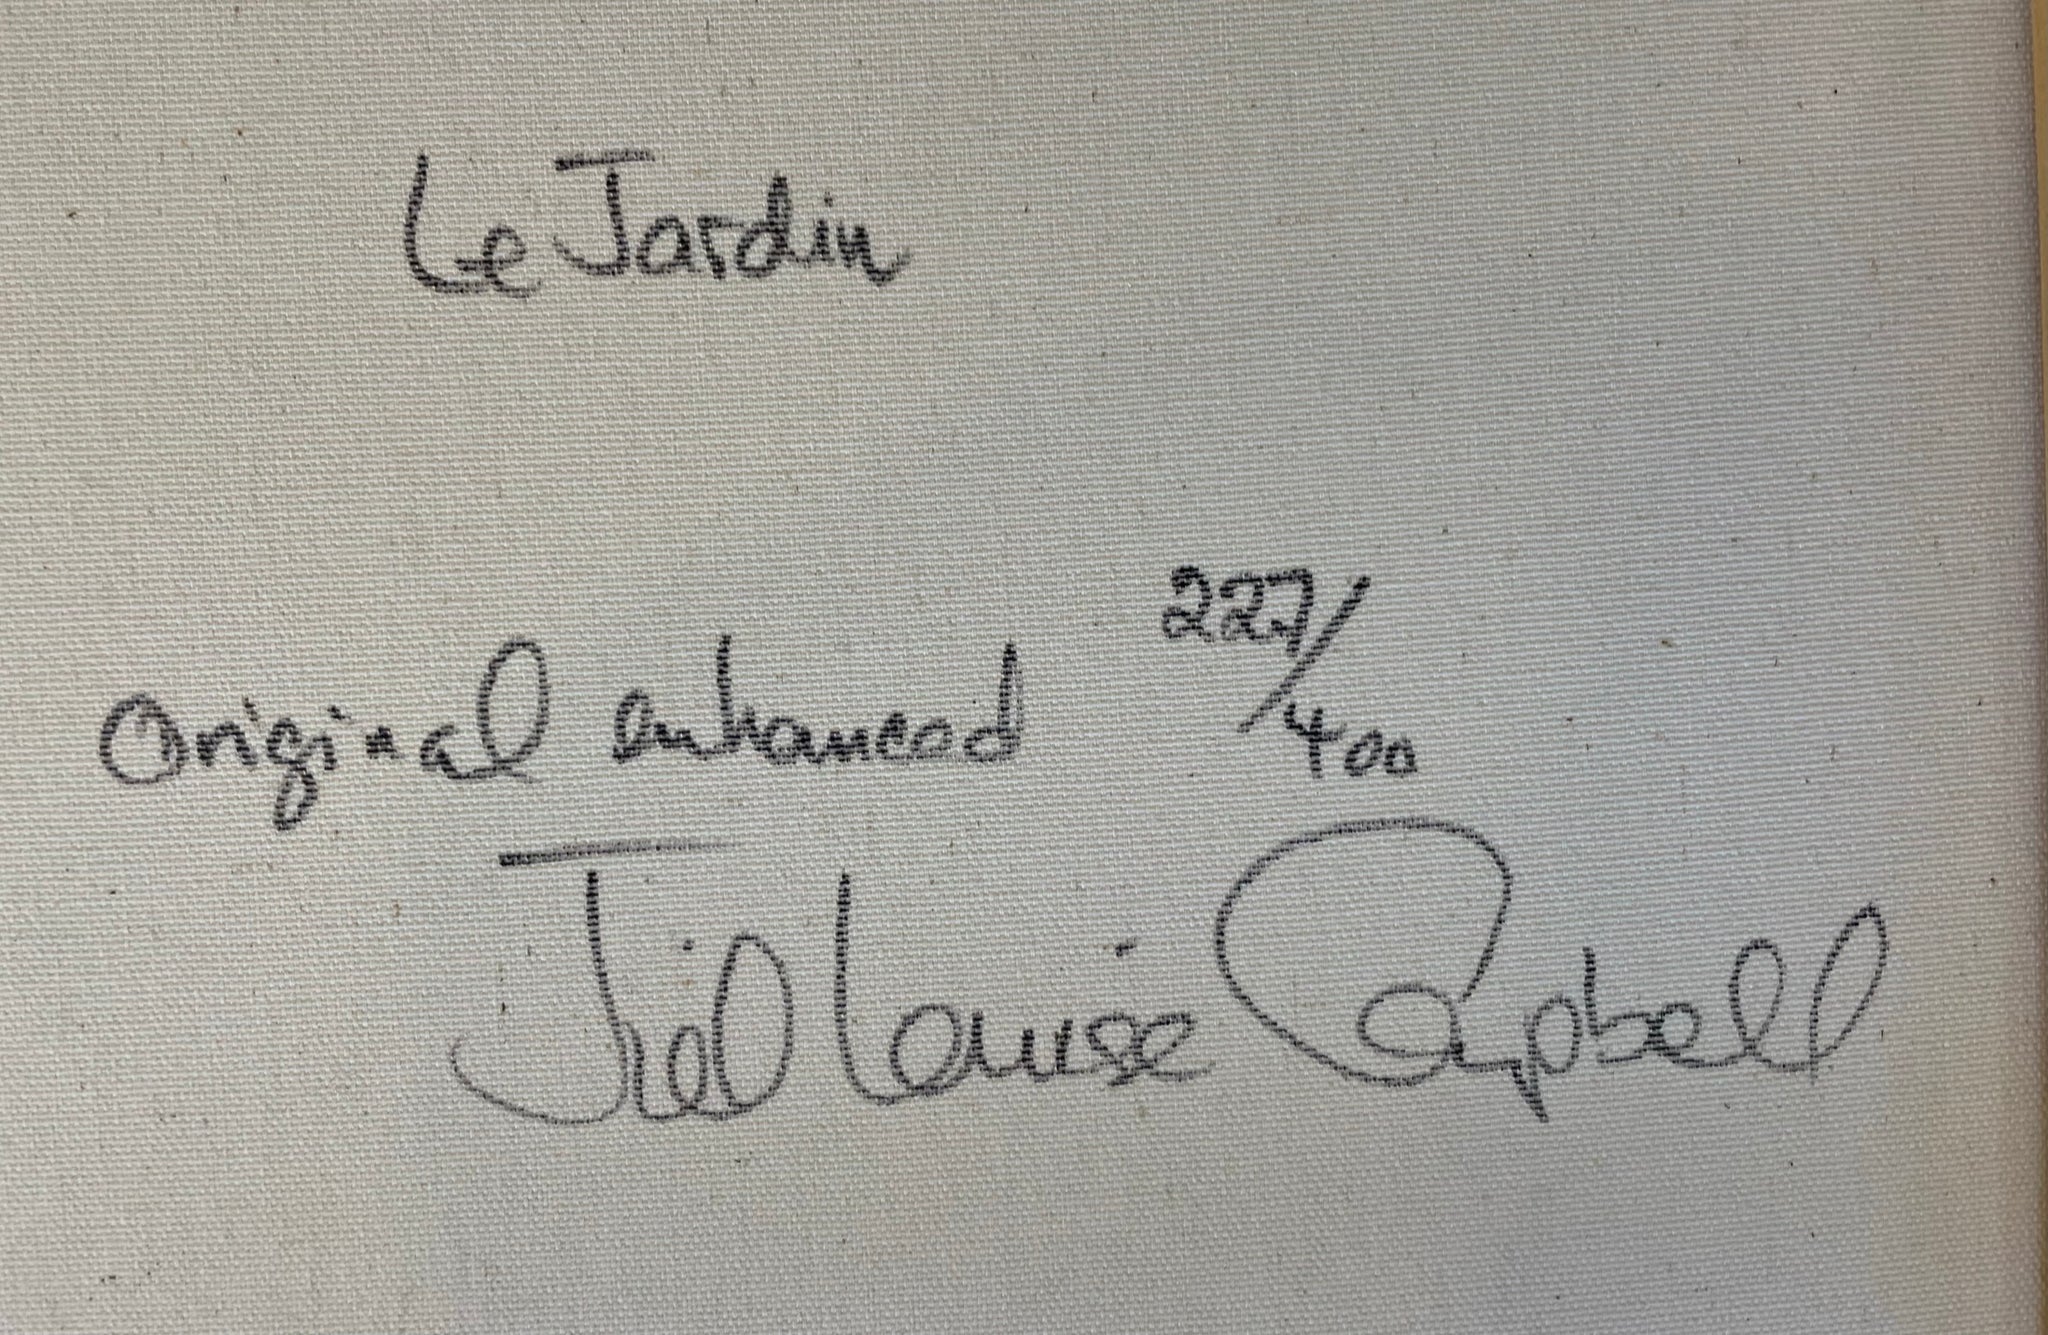 Le Jardin
Original enhanced 227/400
Jill Louise Campbell